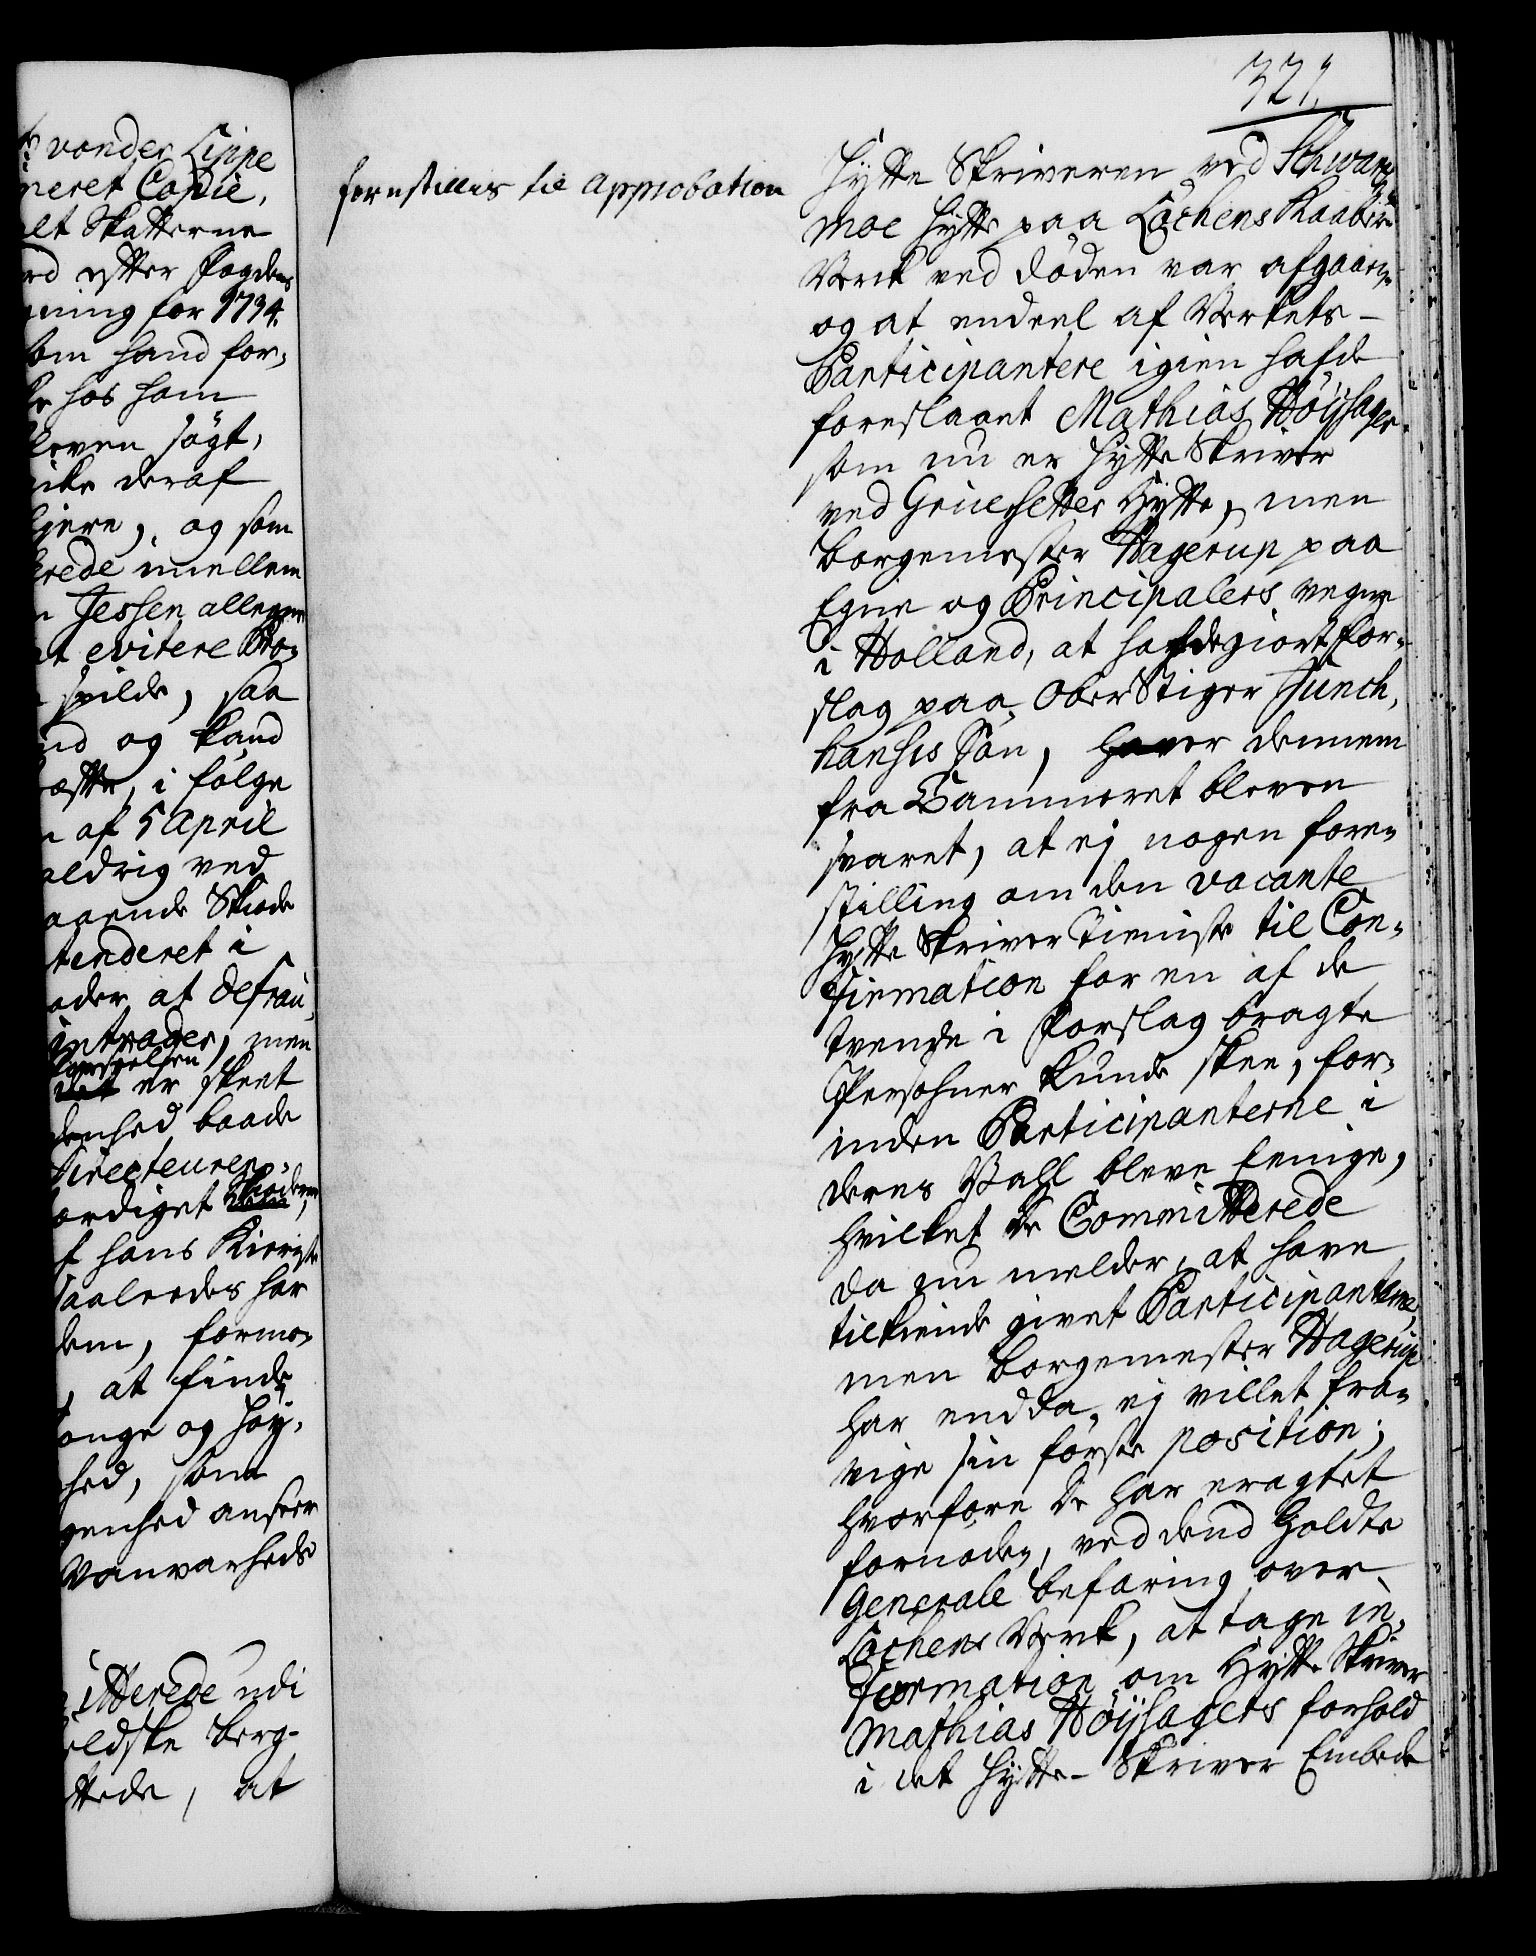 vonder Lippe
neret Copie,
alt Skatterne
rd efter Fogdens
ning for 1734.
som hand for-
hos ham
bleven søgt,
icke deraf
og som
erede imellem
Jessen allegue
at evitere Pro-
spilde, saa
nd og kand
i følge
af 5 April
aldrig ved
aaende Skiøde
tenderet i
eder at defrau-
intrader, men
er skeet
denhed baade
Directeuren
ordiget
f hans
saaledes har
dem, formo-
at finde
onge og høy-
hed, som
genhed anseer
Vanvarhede
itterede udi
eldske berg-
ttede, at
321.
forestilles til Approbation
Hytte Skriveren ved Schwarz
moe Hytte paa Løchens Kaaber
Verk ved døden var afgaaen,
og at endeel af Verkets
Participantere igien hafde
foreslaaet Mathias Høysager
som nu er Hytte Skriver
ved Gruesetter Hytte, men
borgemester Hagerup paa
Egne og Principalers vegne
i Holland, at hafde giort for-
slag paa Ober Stiger Junch,
hanses Søn, haver dennem
fra Cammeret bleven
svaret, at ej nogen fore-
stilling om den vacante
Hytte Skriver Tieniste til Con-
firmation for en af de
tvende i Forslag bragte
Persohner kunde skee, for-
inden Participanterne i
deres Vall bleve Eenige,
hvilket de Committerede
da nu melder, at have
tilkiende givet Participanterne,
men borgemester Hagerup
har endda ej villet fra-
vige sin første position;
hvorfore De har eragtet
fornøden, ved dend holdte
Generale befaring over
Løchens Verk, at tage in-
formation om Hytte Skriver
Mathias Høysagers forhold
i det Hytte-Skriver Embede